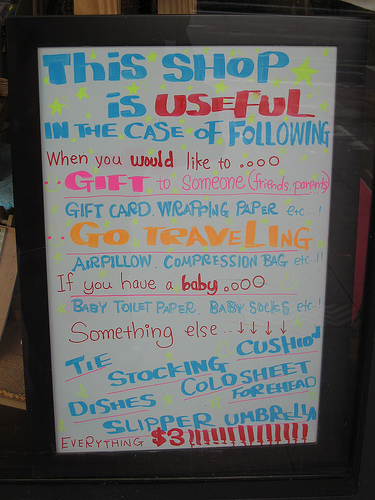 THIS SHOP
is USEFUL
IN THE CASE OF FOLLOWING
When you would like to .ooo
..GIFT to Someone (friends, parents)
GIFT CARD. WRAPPING PAPER etc...!
..GO TRAVELING
AIRPILLOW. COMPRESSION BAG etc..!!
If you have a baby .ooo
BABY TOILET PAPER. BABY SOCKS. etc..!
Something else...↓↓↓↓
TIE STOCKING CUSHION
DISHES COLD SHEET FOREHEAD
SLIPPER UMBRELLA
EVERYTHING $3!!!!!!!!!!!!!!